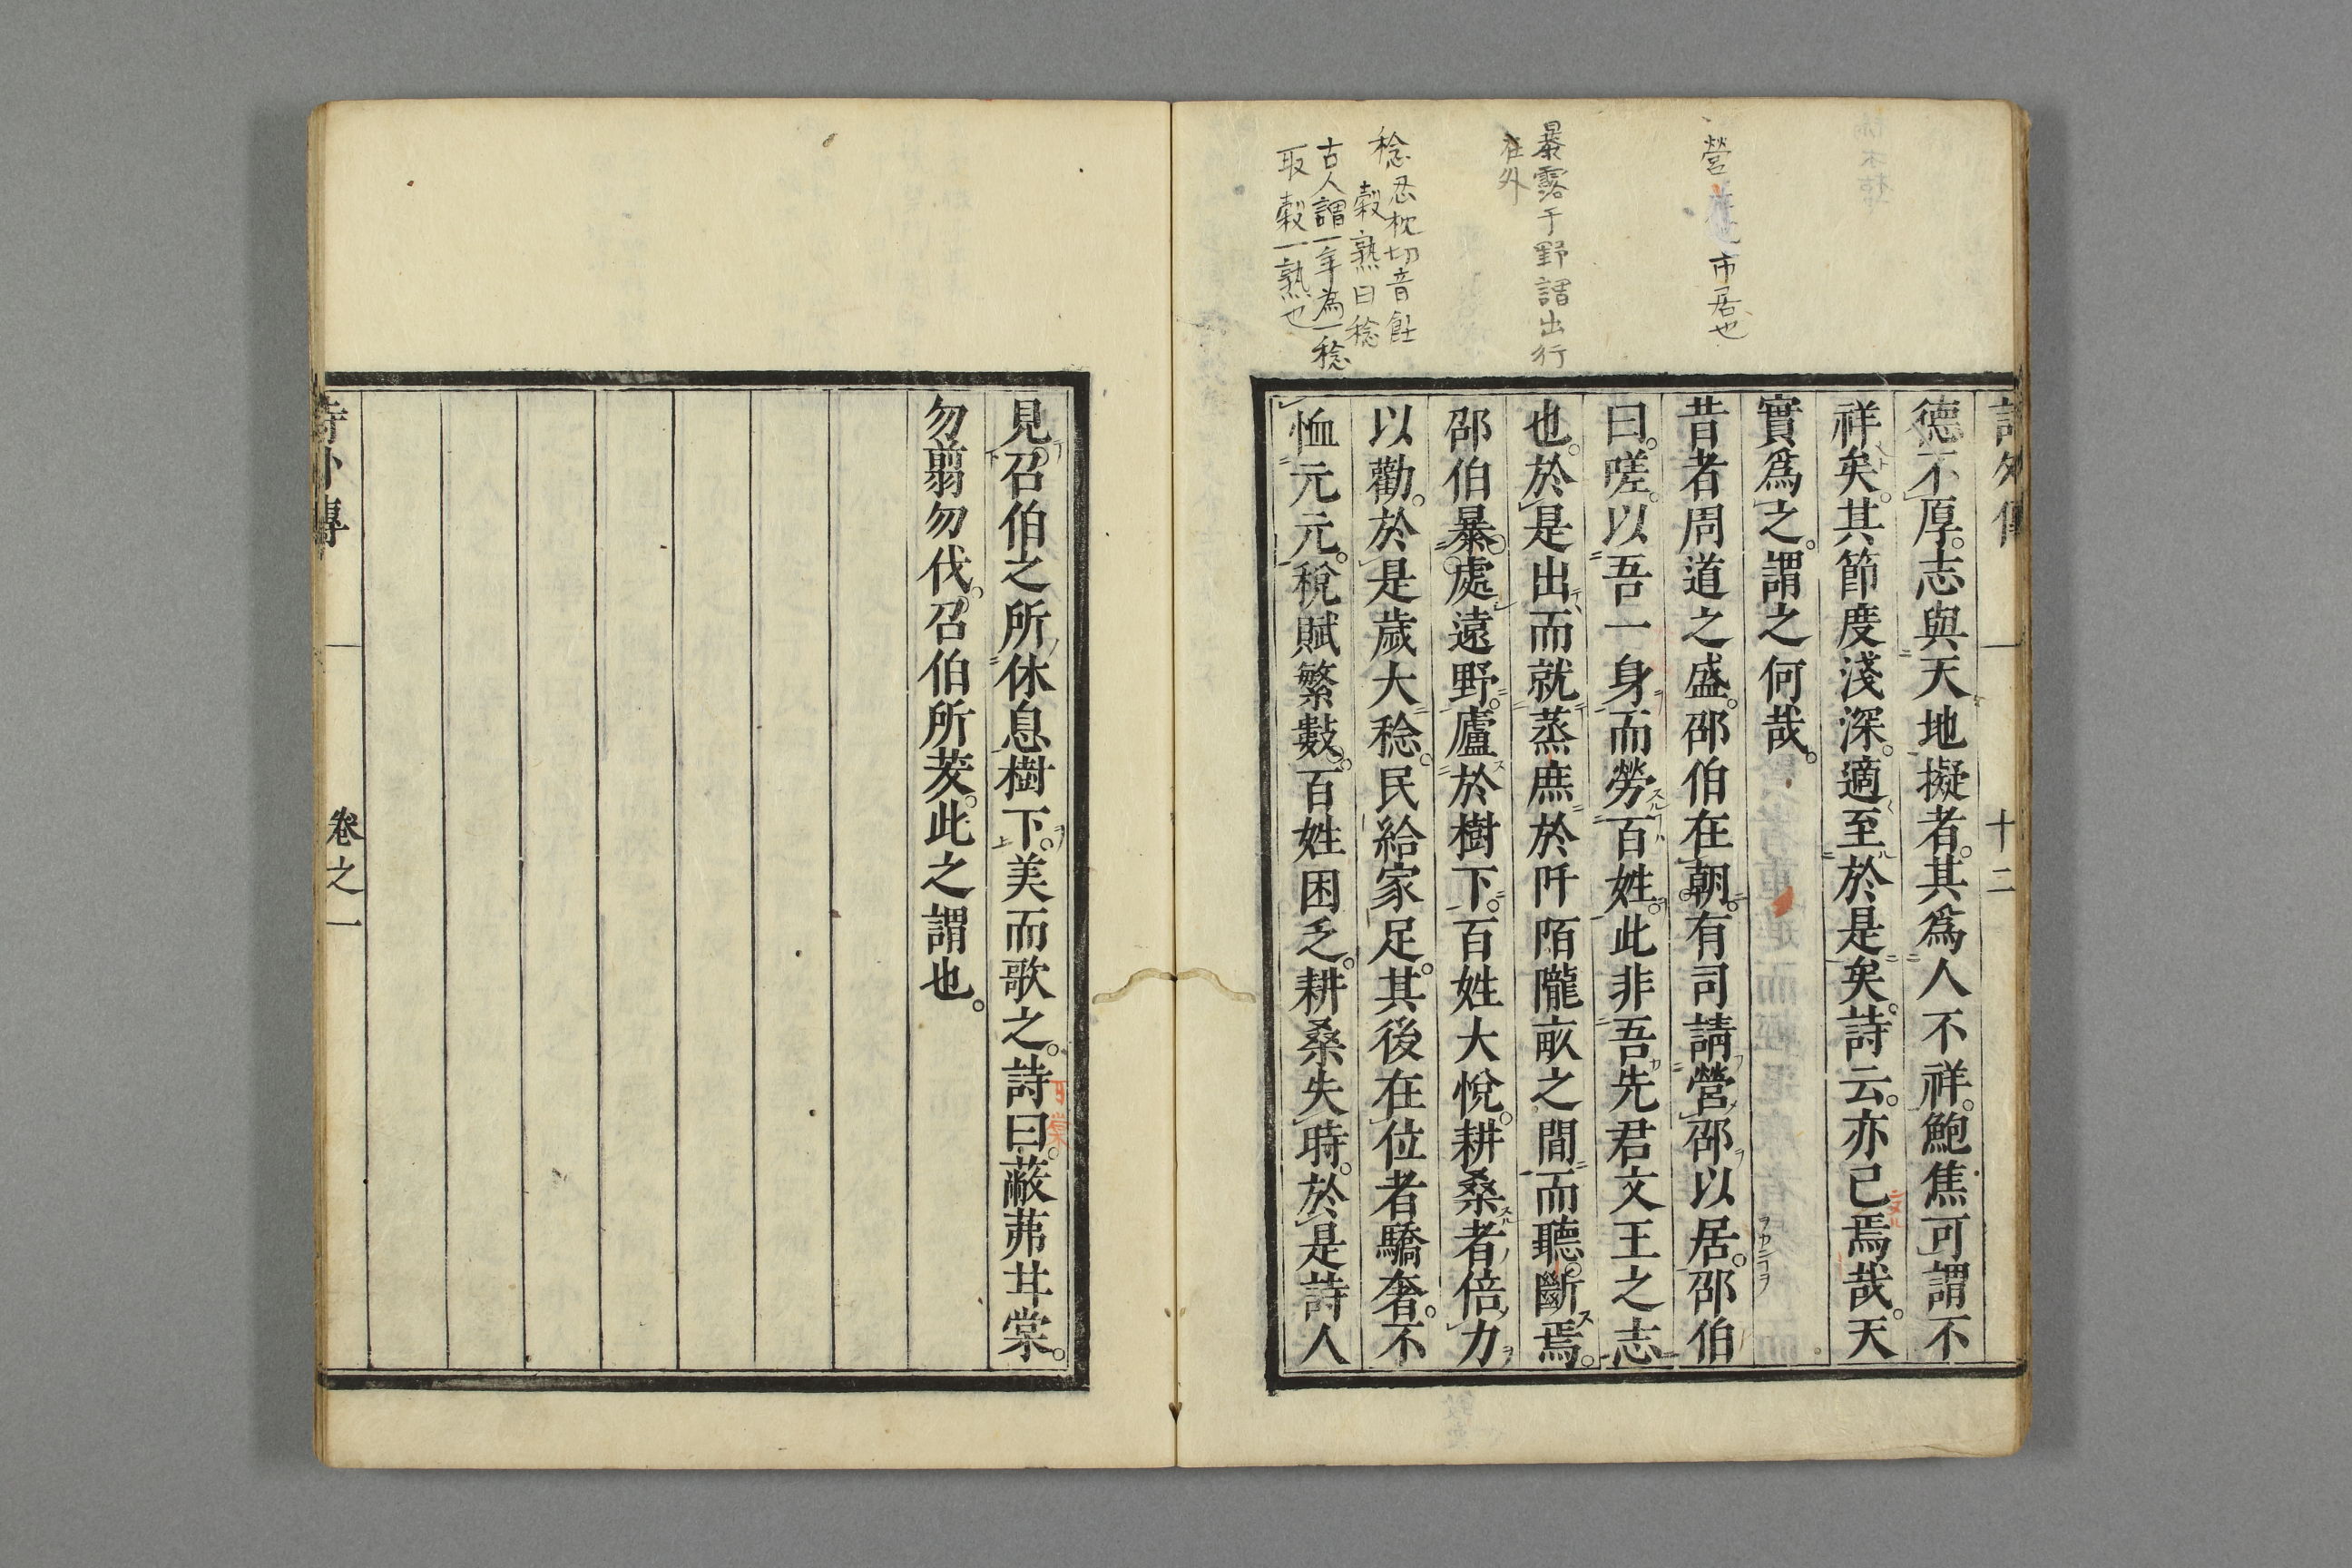 營
市居也
暴露于野謂出行
在外
稔忍枕切音飪
穀熟曰稔
古人謂一年為一稔
取穀一熟也
詩外傳 一 十二
德不厚。志與天地擬者。其爲人不祥。鮑焦可謂不
祥矣。其節度淺深。適至於是矣。詩云。亦已焉哉。天
實爲之。謂之何哉。
昔者周道之盛。邵伯在朝。有司請營邵以居。邵伯
曰。嗟。以吾一身而勞百姓。此非吾先君文王之志
也。於是出而就蒸庶於阡陌隴畝之間而聽斷焉。
邵伯暴處遠野。廬於樹下。百姓大悅。耕桑者倍力
以勸。於是歲大稔。民給家足。其後在位者驕奢。不
恤元元。稅賦繁數。百姓困乏。耕桑失時。於是詩人
見召伯之所休息樹下。美而歌之。詩曰。蔽茀甘棠。
勿翦勿伐。召伯所茇。此之謂也。
詩外傳 一 卷之一